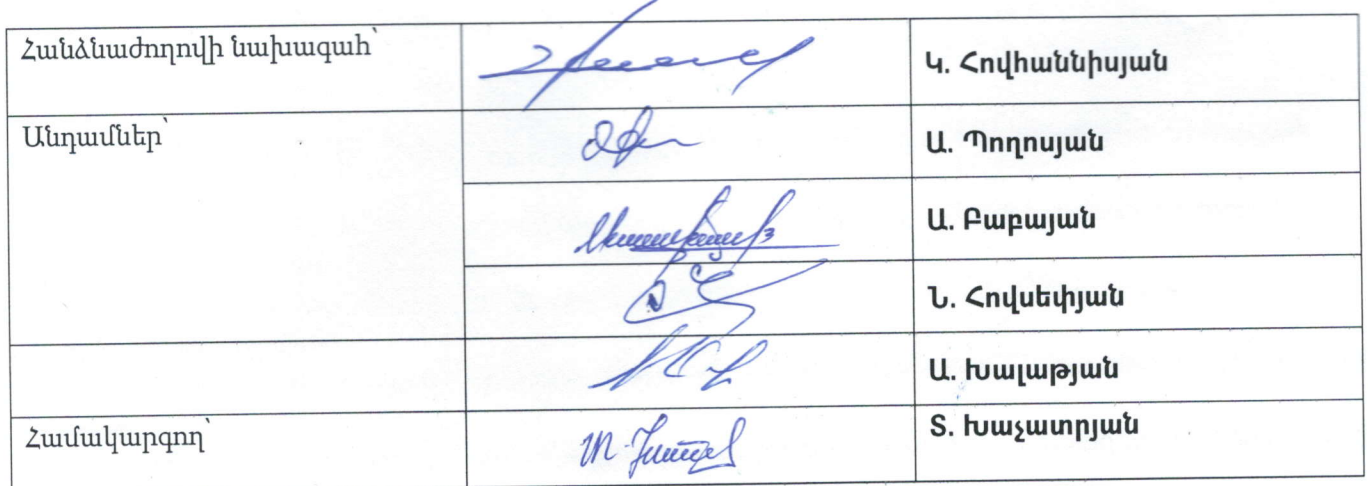 Հանձնաժողովի նախագահ՝
Կ. Հովհաննիսյան
Անդամներ՝
Ա. Պողոսյան
Ա. Բաբայան
Ն. Հովսեփյան
Ա. Խալաթյան
Համակարգող՝
Տ. Խաչատրյան